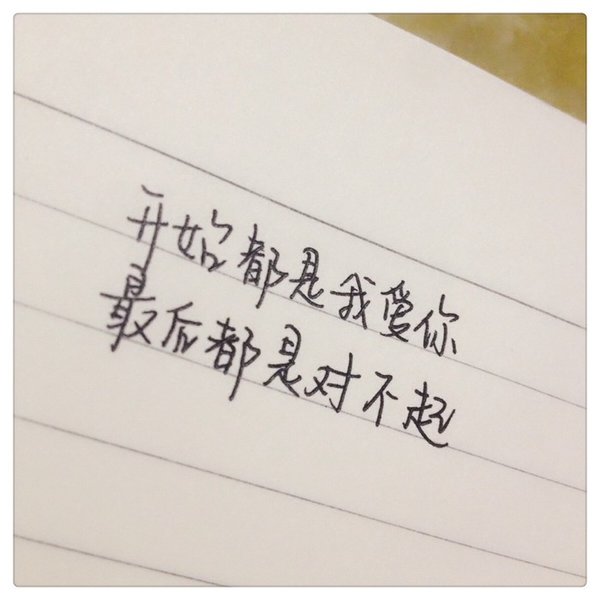 开始都是我爱你
最后都是对不起